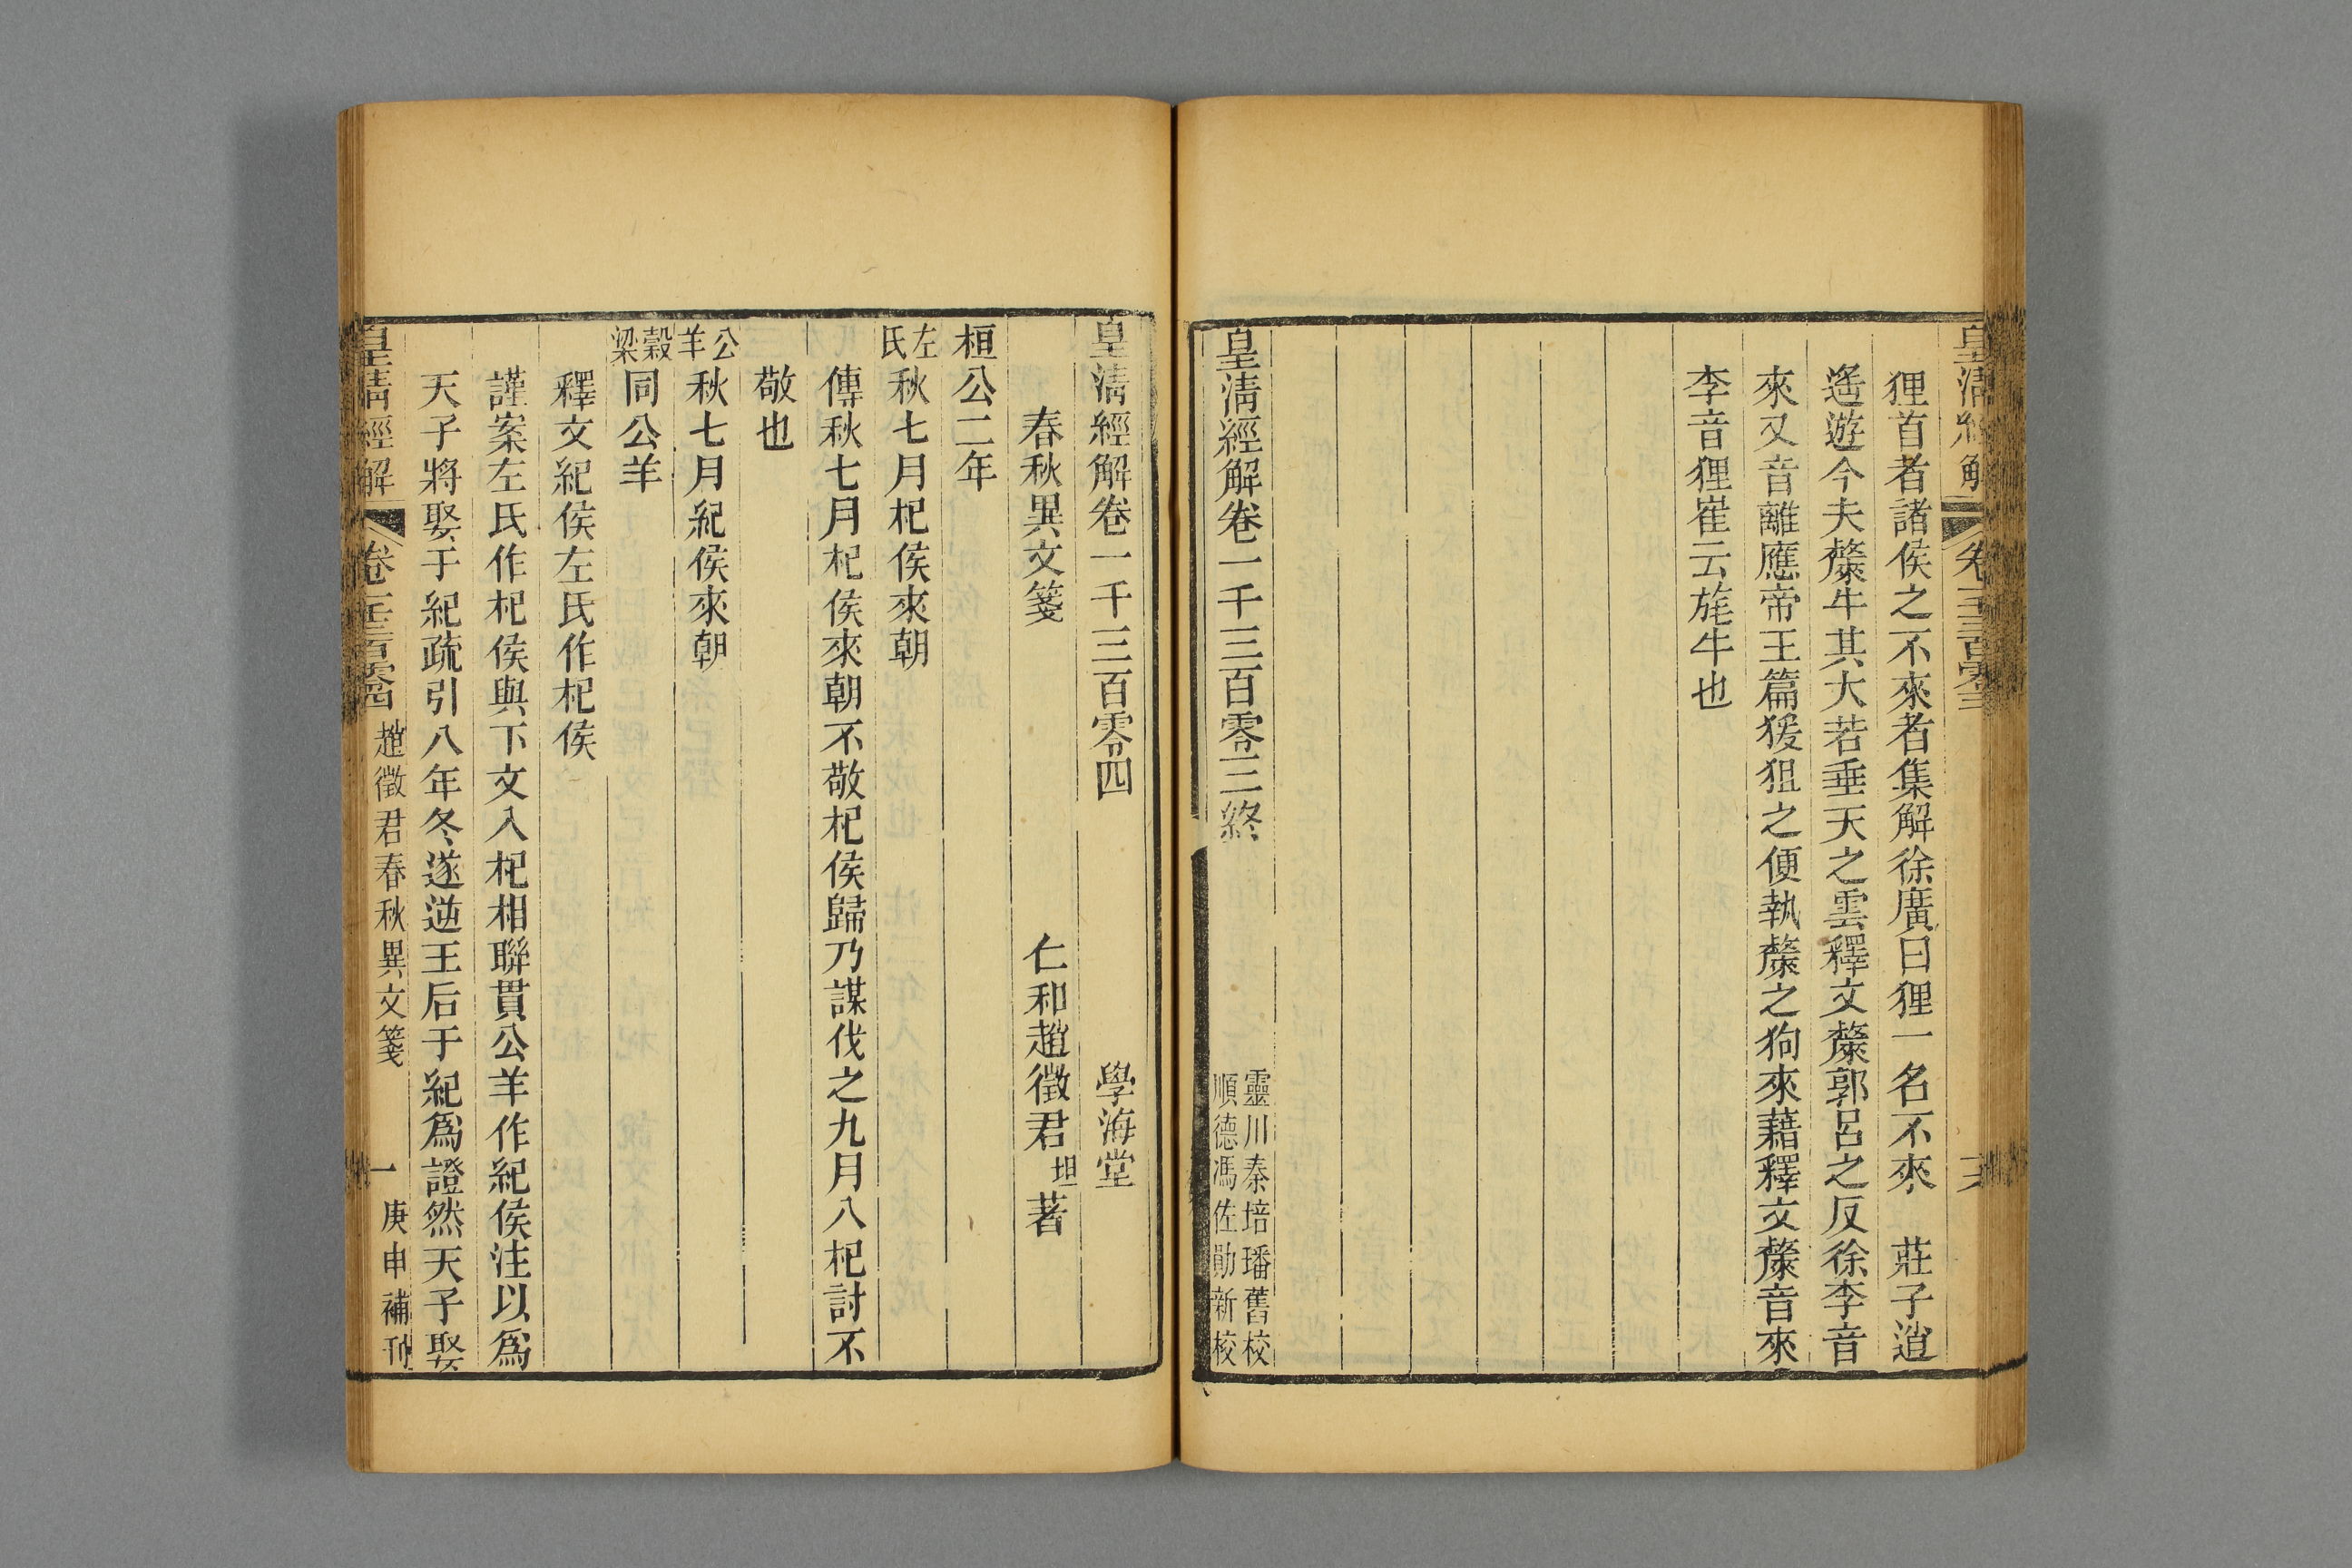 皇清經解
卷一千三百零三
狸首者諸侯之不來者集解徐廣曰狸一名不來 莊子逍
遙遊今夫斄牛其大若垂天之雲釋文斄郭呂之反徐李音
來又音離應帝王篇猨狙之便執斄之狗來藉釋文斄音來
李音狸崔云旄牛也
皇清經解卷一千三百零三終
靈川秦培璠舊校
順德馮佐勛新校
皇清經解卷一千三百零四
學海堂
春秋異文箋
仁和趙徵君坦著
桓公二年
左氏秋七月杞侯來朝
傳秋七月杞侯來朝不敬杞侯歸乃謀伐之九月入杞討不
敬也
公羊秋七月紀侯來朝
穀梁同公羊
釋文紀侯左氏作杞侯
謹案左氏作杞侯與下文入杞相聯貫公羊作紀侯注以爲
天子將娶于紀疏引八年冬遂逆王后于紀爲證然天子娶
皇清經解
卷一千三百零四
趙徵君春秋異文箋
一
庚申補刊